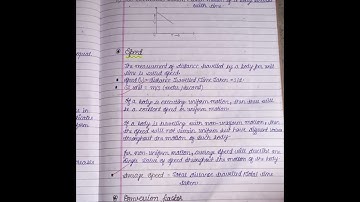 with time
Speed
The measurement of distance travelled by a body per unit
time is called speed.
Speed (s) = Distance Travelled / Time Taken = s/t
SI unit = m/s (metre/second)
If a body is executing uniform motion, then there will
be a constant speed or uniform motion.
If a body is travelling with non-uniform motion, then
the speed will not remain uniform but have different values
throughout the motion of such body.
For non-uniform motion, average speed will describe one
single value of speed throughout the motion of the body.
Average speed = Total distance travelled / Total time
taken
Conversion factor